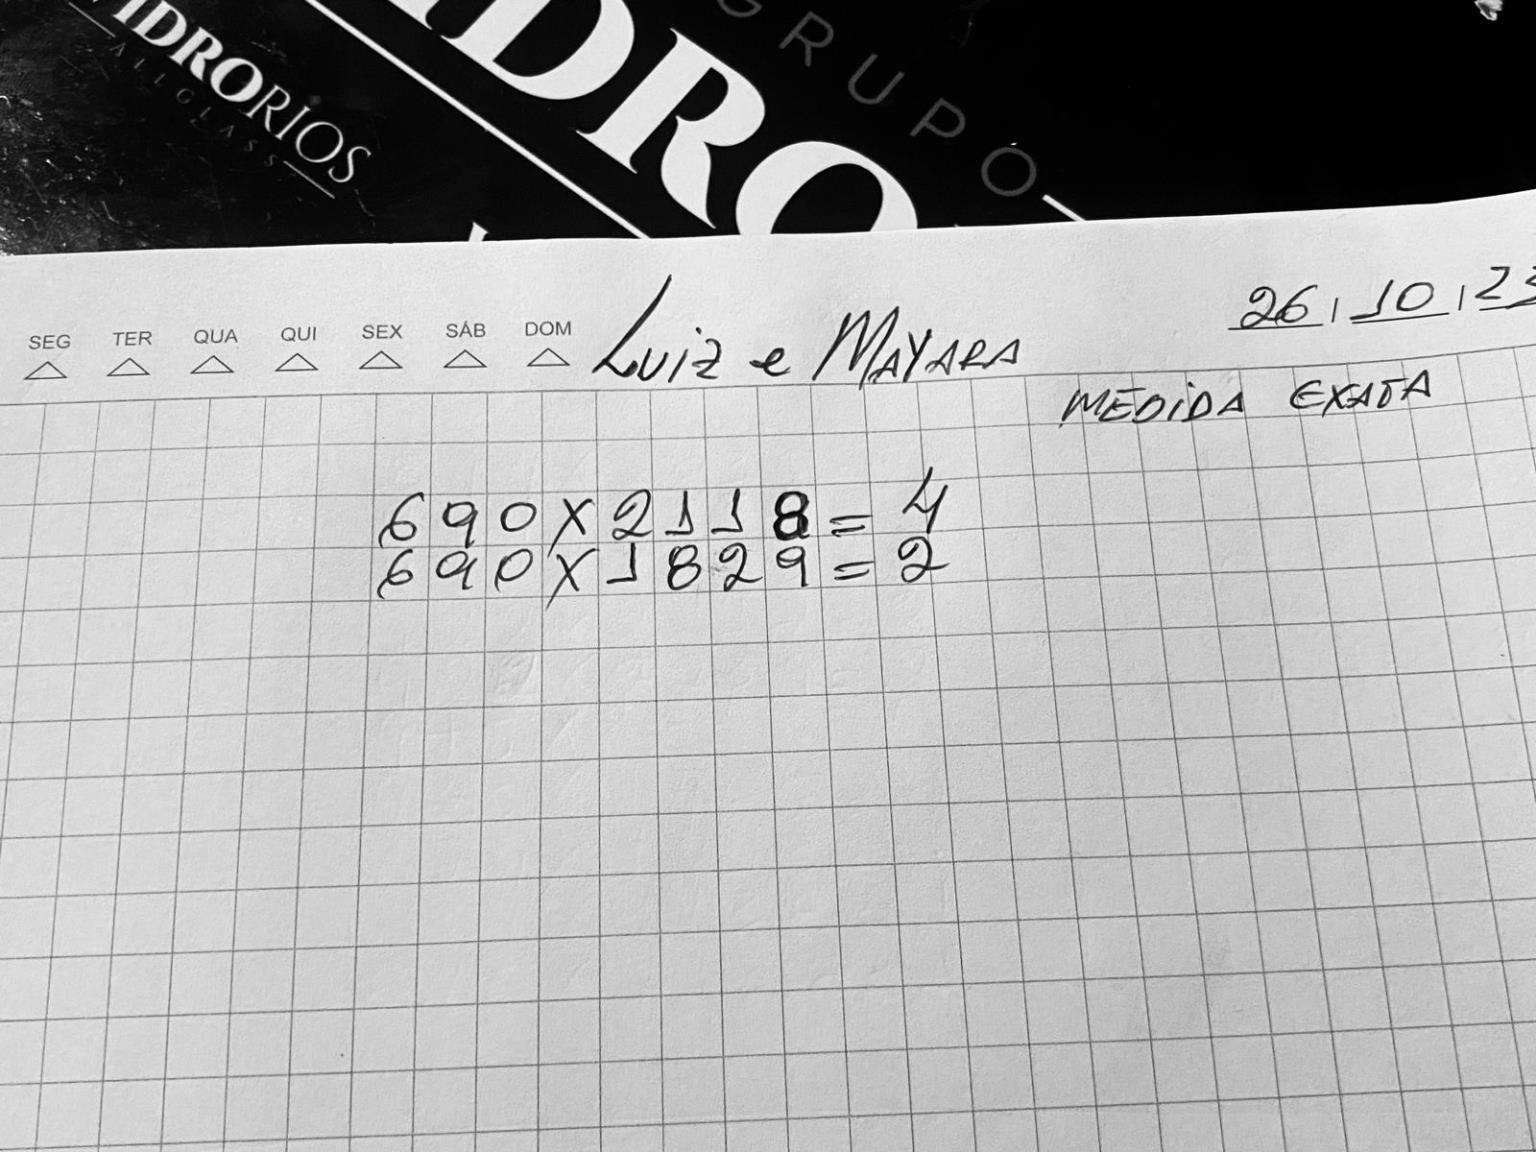 VIDRORIOS
ALLGLASS
IDRO
GRUPO
SEG TER QUA QUI SEX SÁB DOM
Luiz e MAYARA
26/10/23
MEDIDA EXATA
690 X 2118 = 4
690 X 1829 = 2